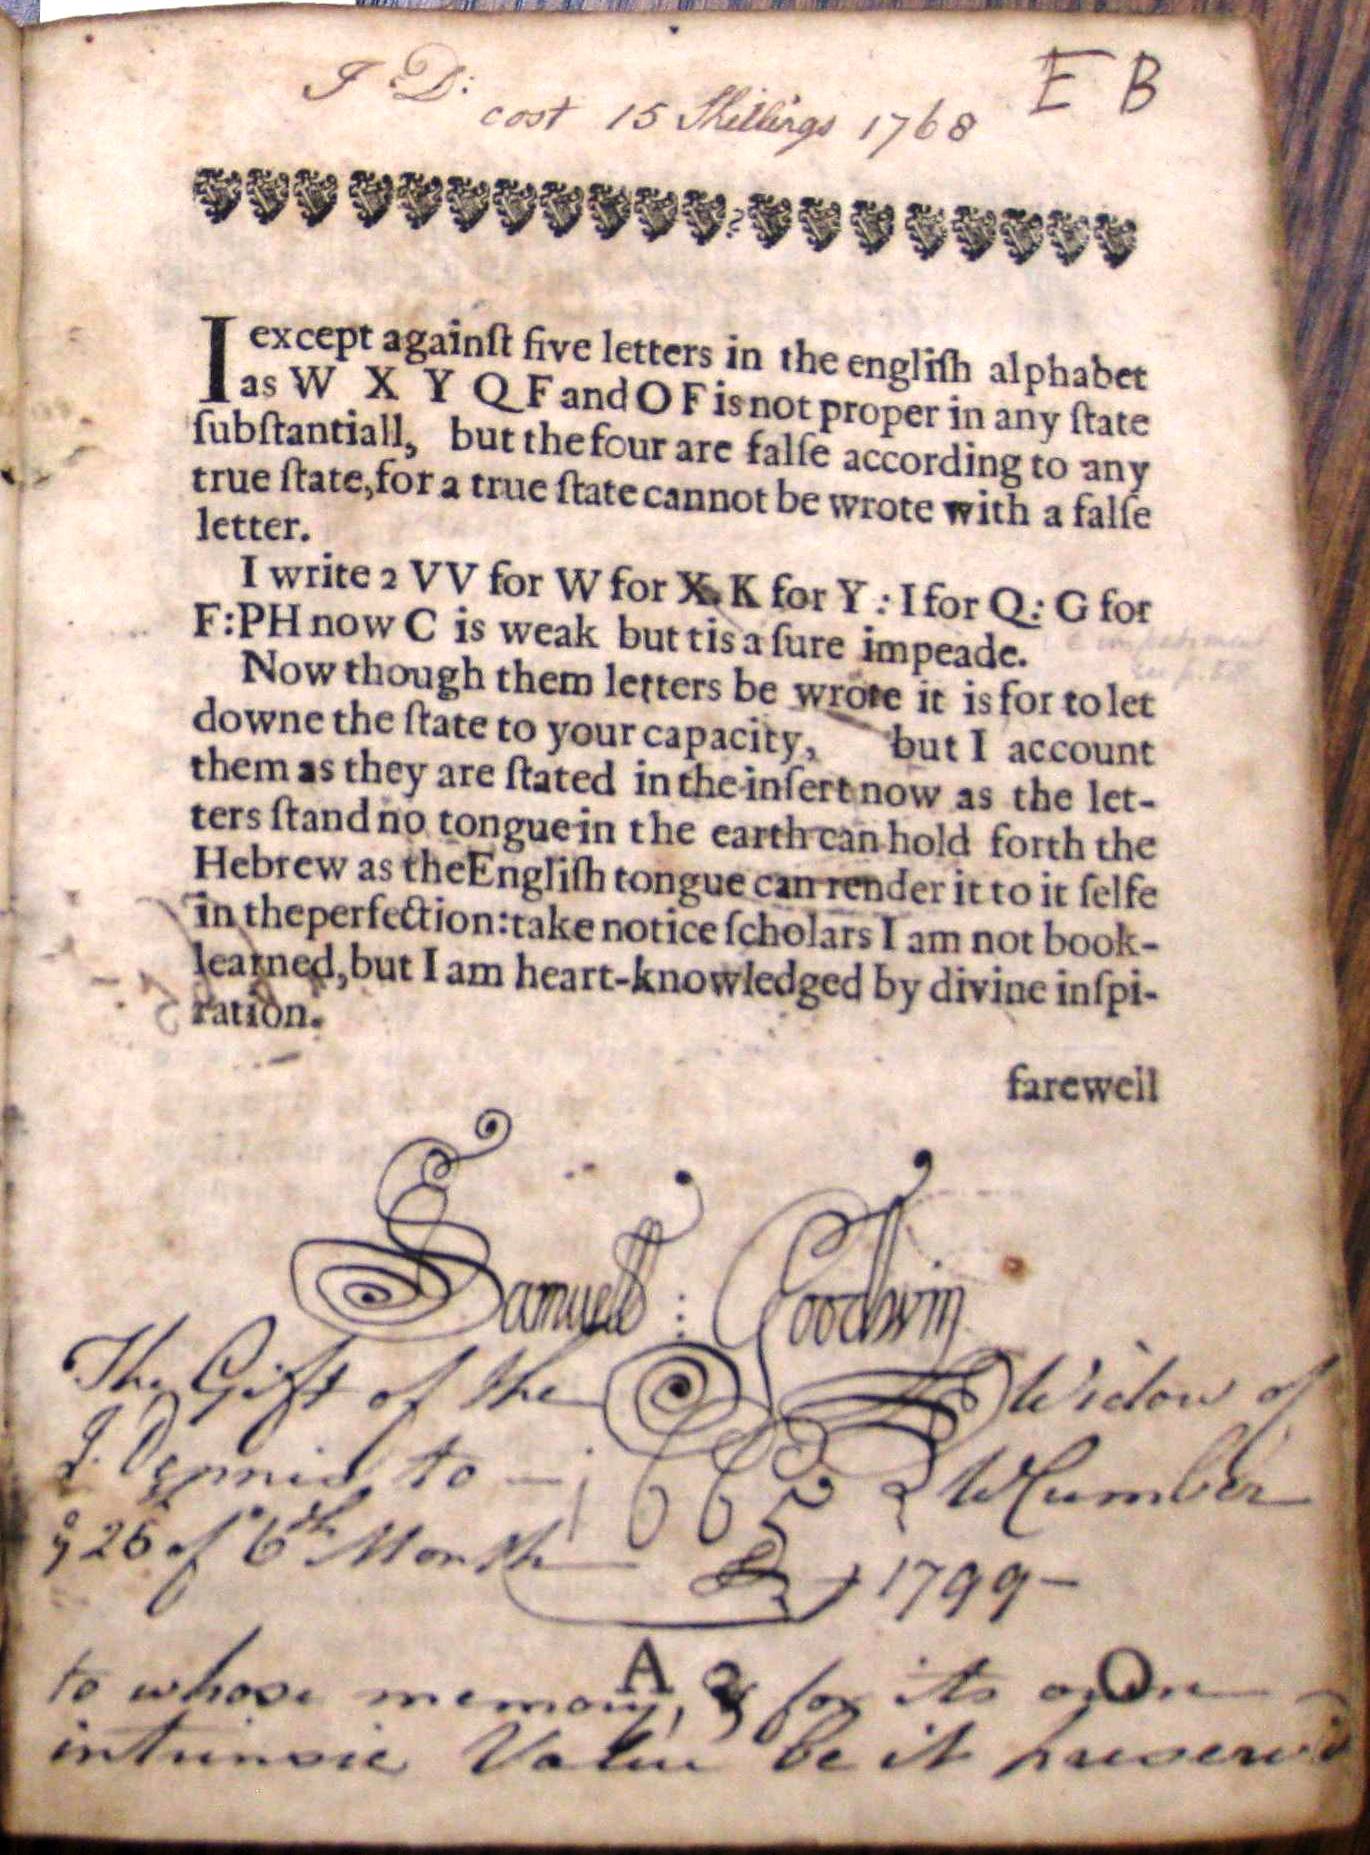 J D:
E B
cost 15 Shillings 1768
I except againſt five letters in the engliſh alphabet
as W X Y Q F and O F is not proper in any ſtate
ſubſtantiall, but the four are falſe according to any
true ſtate, for a true ſtate cannot be wrote with a falſe
letter.
I write 2 VV for W for X, K for Y : I for Q : G for
F : PH now C is weak but tis a ſure impeade.
Now though them letters be wrote it is for to let
downe the ſtate to your capacity, but I account
them as they are ſtated in the inſert now as the let-
ters ſtand no tongue in the earth can hold forth the
Hebrew as the Engliſh tongue can render it to it ſelfe
in the perfection: take notice ſcholars I am not book-
learned, but I am heart-knowledged by divine inſpi-
ration.
farewell
Samuell : Goodwin
The Gift of the Widow of
J. Dennis to — W Cumber
1665
ye 26 of 6th Month 1799 —
A O
to whose memory, & for its own
intrinsic Value be it preserv'd